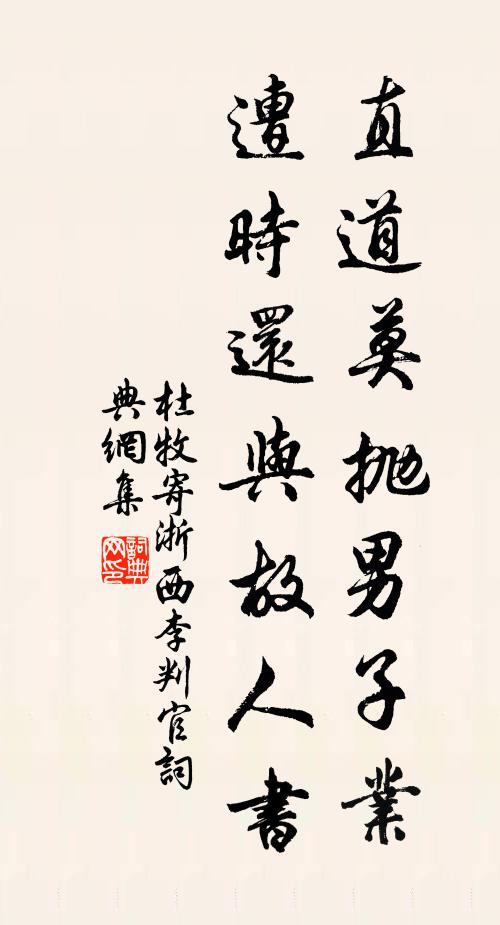 直道莫抛男子業
遭時還與故人書
杜牧寄浙西李判官詞
典網集
詞典
网印